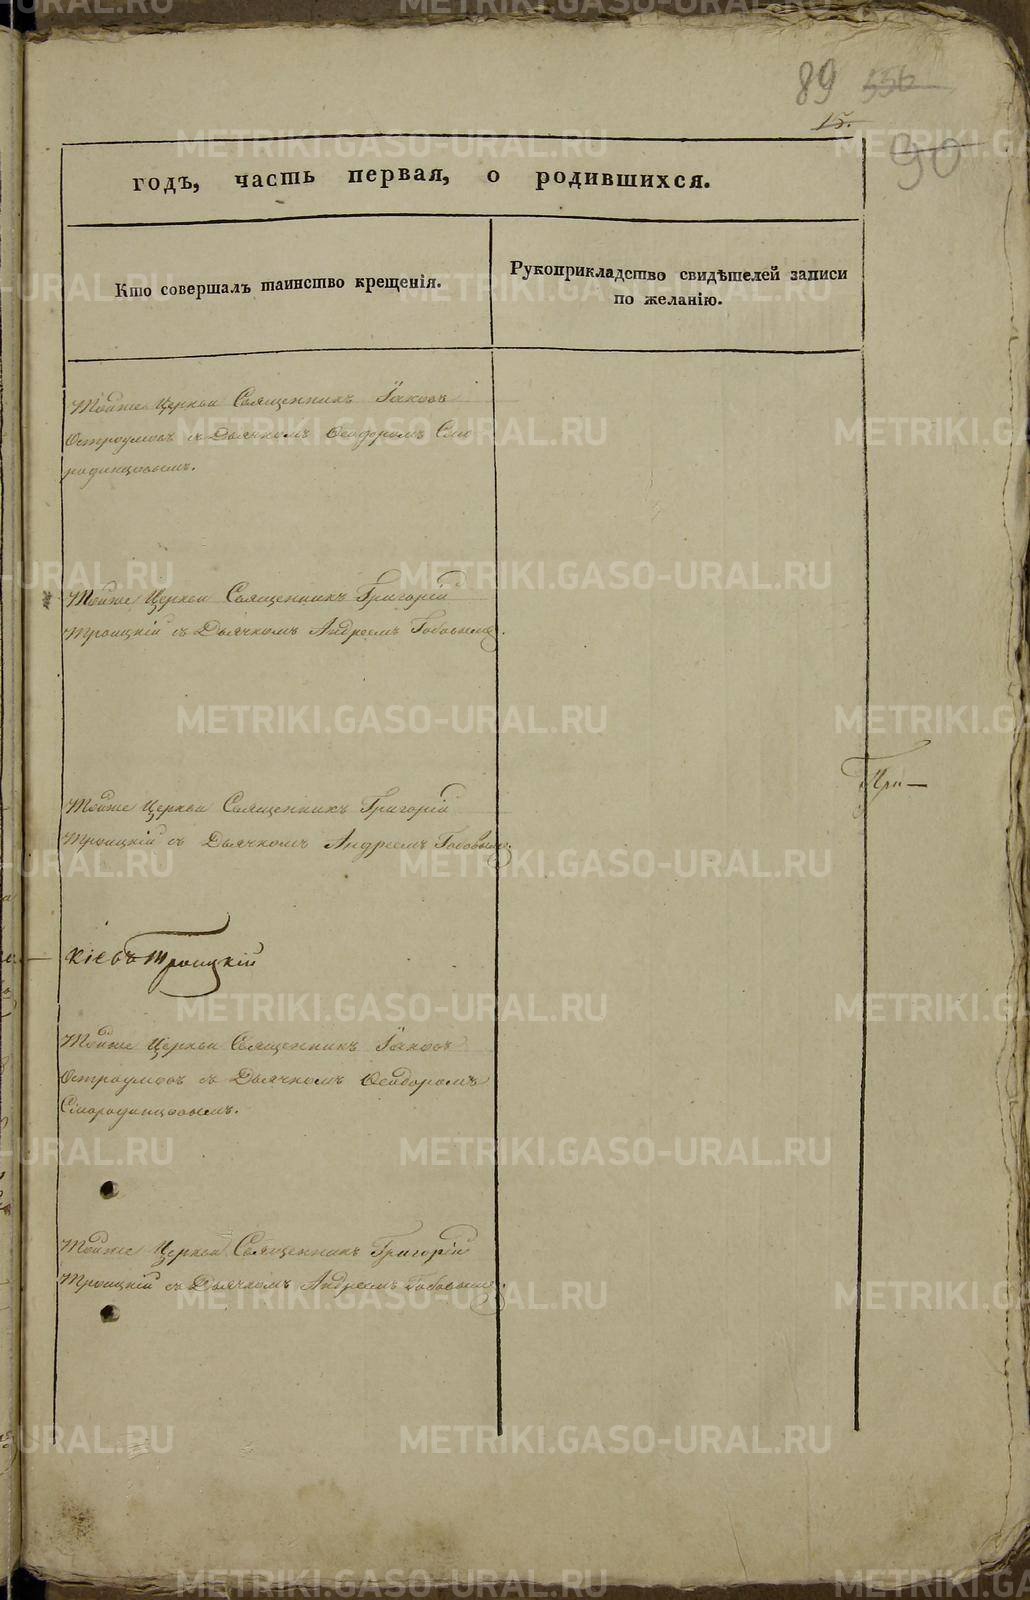 89 556
15.
90
годъ, часть первая, о родившихся.
Кто совершалъ таинство крещенія.
Рукоприкладство свидѣтелей записи
по желанію.
Тойже Церкви Священникъ Іаковъ
Остроумовъ съ Дьячкомъ Ѳеодоромъ Смо
родинцовымъ.
Тойже Церкви Священникъ Григорій
Троицкій съ Дьячкомъ Андреемъ Бобовымъ.
При—
Тойже Церкви Священникъ Григорій
Троицкій съ Дьячкомъ Андреемъ Бобовымъ.
Троицкій
Тойже Церкви Священникъ Іаковъ
Остроумовъ съ Дьячкомъ Ѳеодоромъ
Смородинцовымъ.
Тойже Церкви Священникъ Григорій
Троицкій съ Дьячкомъ Андреемъ Бобовымъ.
METRIKI.GASO-URAL.RU